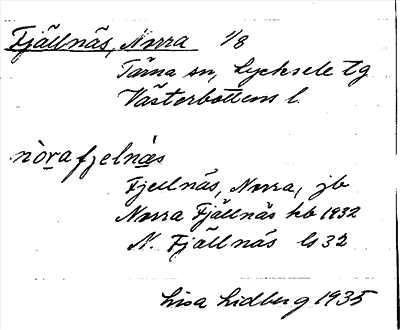 Fjällnäs, Norra 1/8
Tärna sn, Lycksele tg
Västerbottens l.
nòrafjelnás
Fjellnäs, Norra, jb
Norra Fjällnäs hb 1932
N. Fjällnäs ls 32
Lisa Lidberg 1935